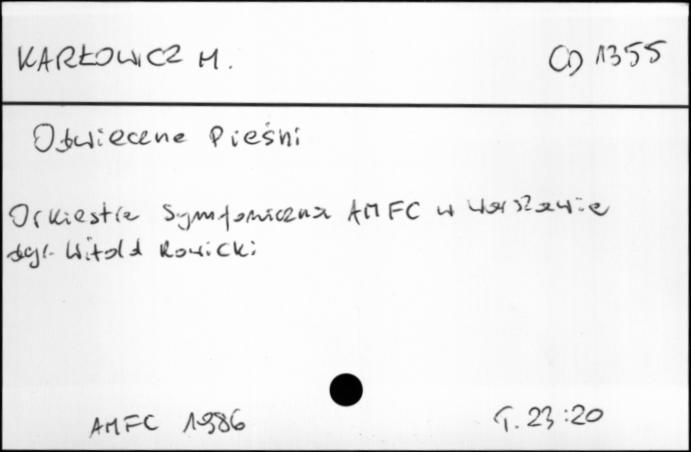 KARŁOWICZ M. CD 1355
Odwieczne Pieśni
Orkiestra Symfoniczna AMFC w Warszawie
dyr. Witold Rowicki
AMFC 1986 T. 23:20